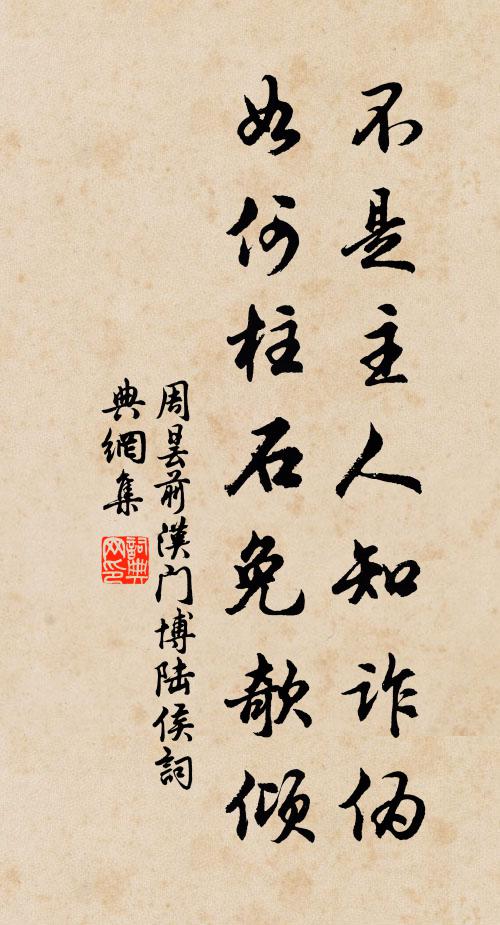 不是主人知诈伪
如何柱石免欹倾
周昙前漢门博陆侯詞
典網集
詞典
网印